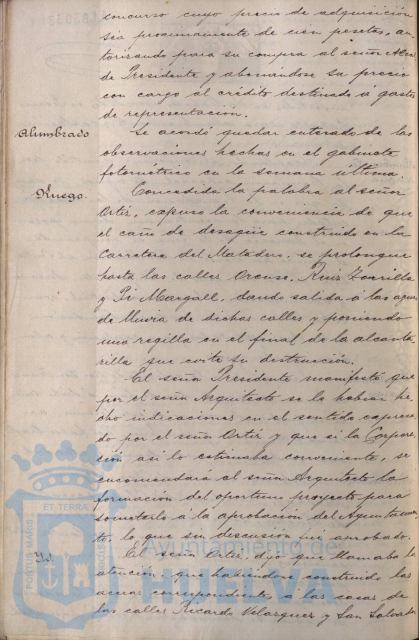 concurso cuyo precio de adquisición
sea proximamente de cien pesetas, au-
torizando para su compra al señor Alcal
de Presidente y abonándose su precio
con cargo al crédito destinado á gastos
de representación.
Alumbrado
Se acordó quedar enterado de las
observaciones hechas en el gabinete
fotométrico en la semana última.
Ruego.
Concedida la palabra al señor
Ortiz, expuso la conveniencia de que
el caño de desagüe construido en la
Carretera del Matadero, se prolongue
hasta las calles Orense, Ruiz Zorrilla
y Pi Margall, dando salida á las aguas
de lluvia de dichas calles y poniendo
una regilla en el final de la alcanta-
rilla que evite su destrucción.
El señor Presidente manifestó que
por el señor Arquitecto se le habían he-
cho indicaciones en el sentido expresa-
do por el señor Ortiz y que si la Corpora-
ción así lo estimaba conveniente, se
encomendará al señor Arquitecto la
formación del oportuno proyecto para
someterlo á la aprobación del Ayuntamien-
to, lo que sin discusión fué aprobado.
Id.
El señor Ortiz dijo que llamaba la
atención que habiéndose construido las
aceras correspondientes á las casas de
las calles Ricardo Velazquez y San Salvador
PORTUS MARIS
ET TERRAE
CUSTODIA
Ayuntamiento de
HUELVA